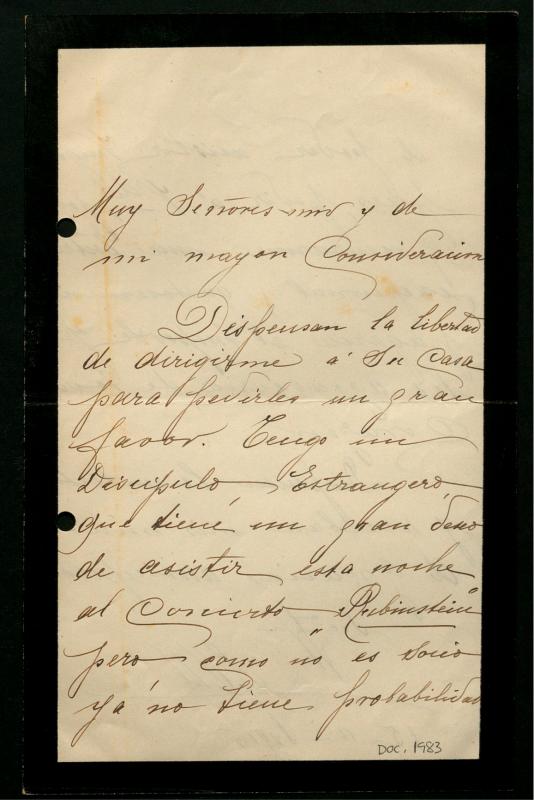 Muy Señores mio y de
mi mayor Consideracion
Dispensan la libertad
de dirigirme á Su Casa
para pedirles un gran
favor. Tengo un
Discípulo Estrangero,
que tiene un gran deseo
de asistir esta noche
al Concierto Rubinstein"
pero como no es Socio
ya no tiene probabilidad
DOC. 1983